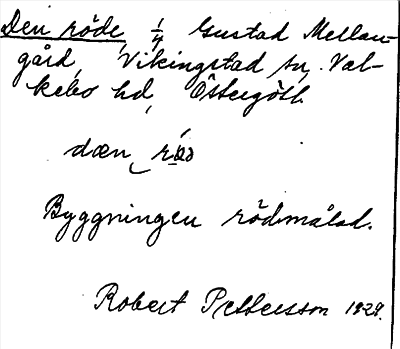 Den röde 1/4 Gustad Mellan-
gård, Vikingstad sn, Val-
kebo hd, Östergötl.
dæn
Byggningen rödmålad.
Robert Pettersson 1929.